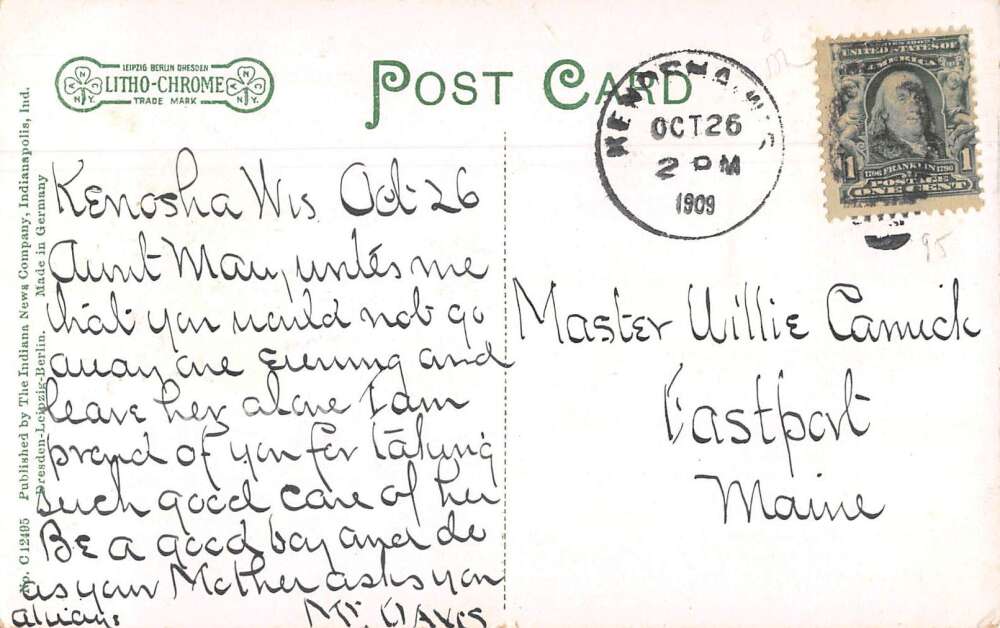 LEIPZIG BERLIN DRESDEN
LITHO-CHROME
TRADE MARK
N N
N.Y. N.Y.
POST CARD
KENOSHA, WIS.
OCT 26
2 PM
1909
SERIES 1902
UNITED STATES OF
AMERICA
1 1
1706 FRANKLIN 1790
POSTAGE
ONE CENT
95
Kenosha Wis Oct 26
Aunt Mary writes me
that you would not go
away one Evening and
leave her alone I am
proud of you for taking
such good care of her
Be a good boy and do
as your Mother asks you
always Mr. Davis
Master Willie
Eastport
Maine
No. C 12495 Published by The Indiana News Company, Indianapolis, Ind.
Dresden-Leipzig-Berlin. Made in Germany